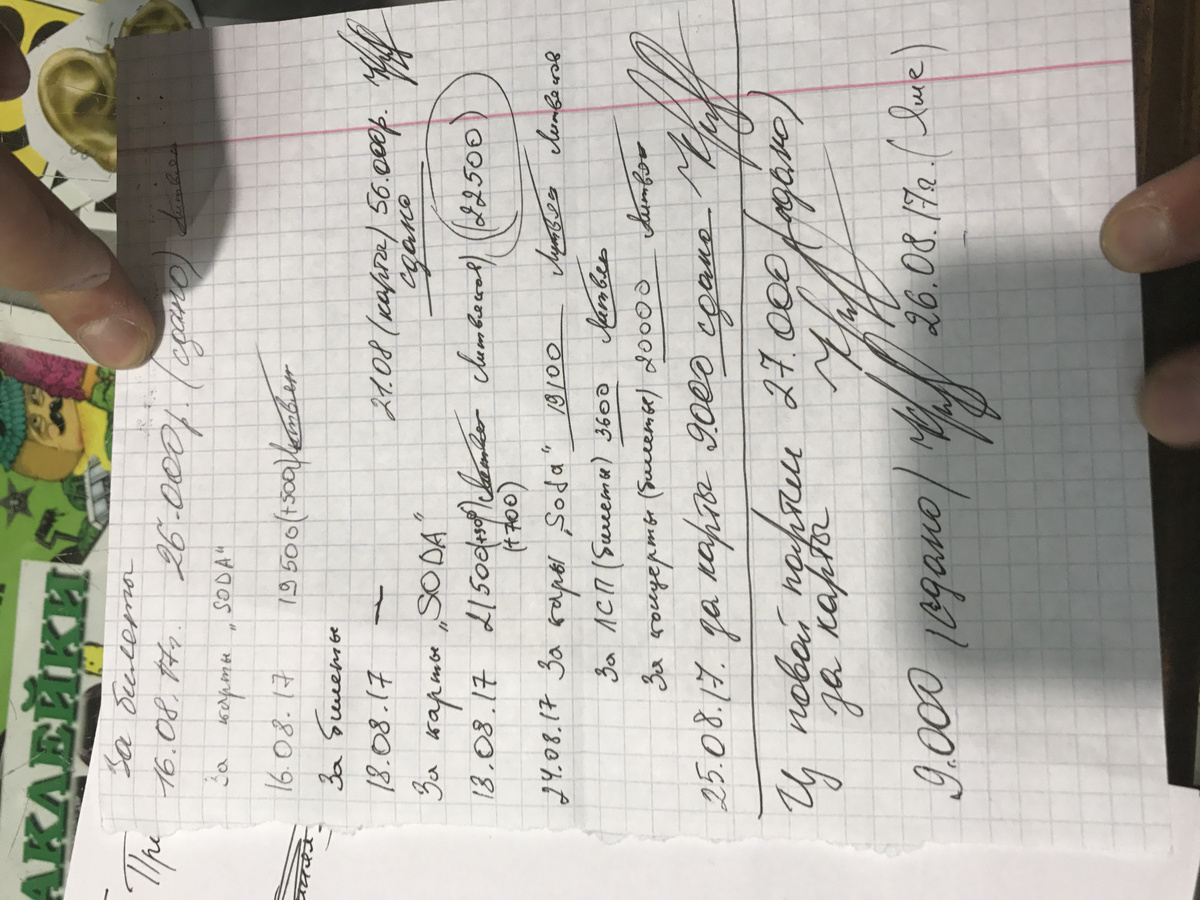 АКЛЕЙКИ
При
За билеты
16.08.17г. 26.000р. (сдано)
За карты „SODA"
16.08.17 19500 (+500)
За билеты
18.08.17 — 21.08 (карта) 56.000р.
сдано
За карты „SODA"
18.08.17 21500 (22500)
(+700)
24.08.17 За кары „Soda" 19100
За ЛСП (билеты) 3600
За концерты (билеты) 20000
25.08.17. за карты 9.000 сдано
новой партии 27.000 (сдано)
за карты
9.000 (сдано) 26.08.17г.